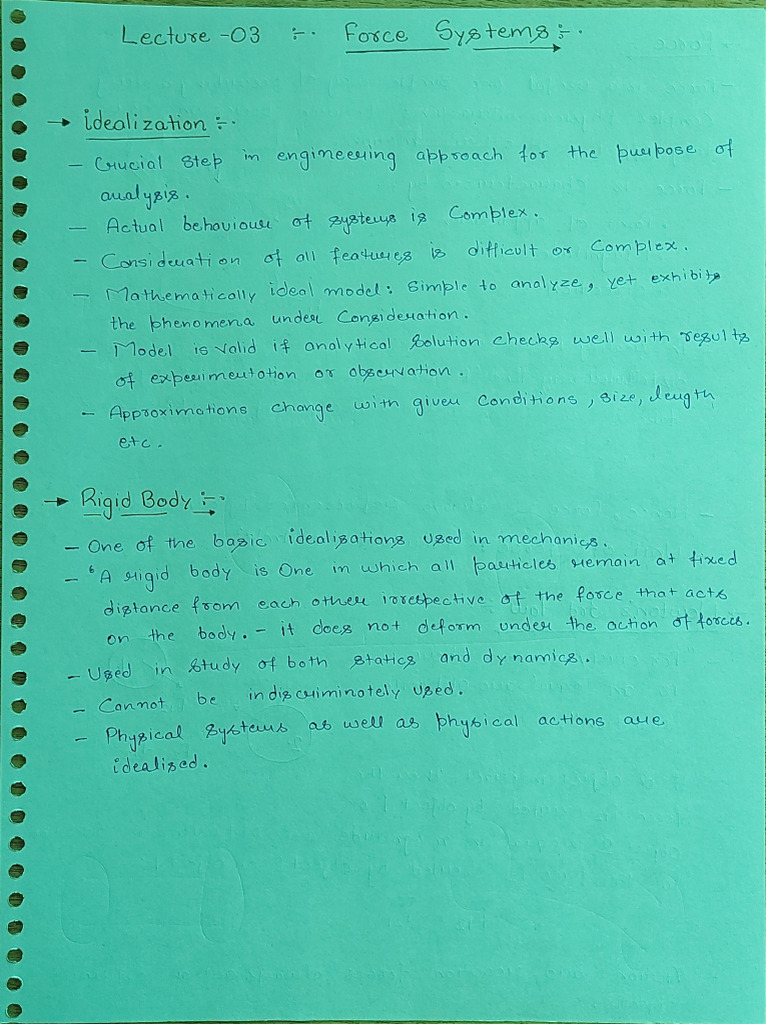 Lecture -03 :-. Force Systems :-.
→ idealization :-.
- Crucial step in engineering approach for the purpose of
analysis.
- Actual behaviour of systems is Complex.
- Consideration of all features is difficult or Complex.
- Mathematically ideal model: Simple to analyze, yet exhibits
the phenomena under Consideration.
- Model is valid if analytical Solution checks well with results
of experimentation or observation.
- Approximations change with given conditions, size, length
etc.
→ Rigid Body :-.
- One of the basic idealisations used in mechanics.
- ‘A rigid body is One in which all particles remain at fixed
distance from each other irrespective of the force that acts
on the body. - it does not deform under the action of forces.
- Used in study of both statics and dynamics.
- Cannot be indiscriminately used.
- Physical systems as well as physical actions are
idealised.